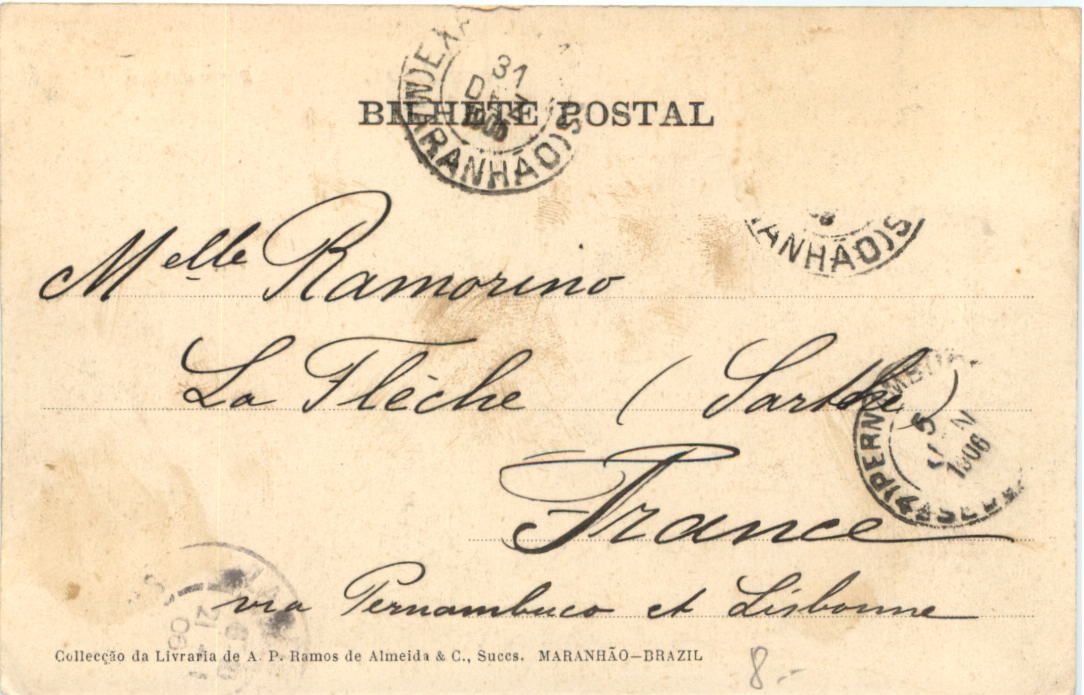 31
BILHETE POSTAL
(MARANHÃO)S
RANHÃO)S
Melle Ramorino
La Flèche (Sarthe)
PERNAMBU
5
1906
France
via Pernambuco et Lisbonne
Collecção da Livraria de A. P. Ramos de Almeida & C., Succs. MARANHÃO—BRAZIL
8.-